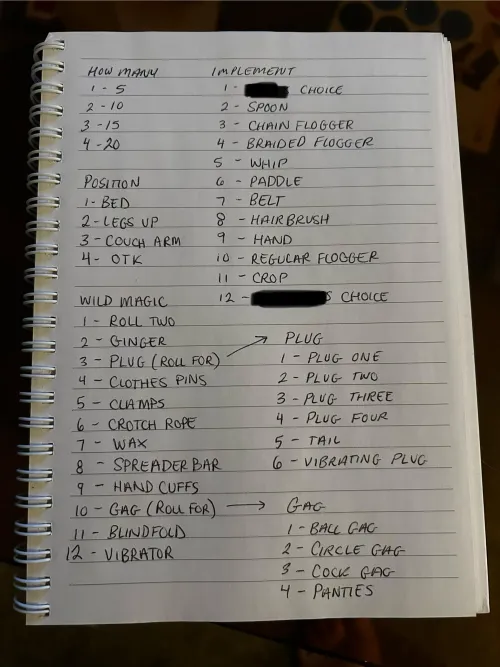 HOW MANY
1 - 5
2 - 10
3 - 15
4 - 20
POSITION
1 - BED
2 - LEGS UP
3 - COUCH ARM
4 - OTK
WILD MAGIC
1 - ROLL TWO
2 - GINGER
3 - PLUG (ROLL FOR)
4 - CLOTHES PINS
5 - CLAMPS
6 - CROTCH ROPE
7 - WAX
8 - SPREADER BAR
9 - HAND CUFFS
10 - GAG (ROLL FOR)
11 - BLINDFOLD
12 - VIBRATOR
IMPLEMENT
1 - S CHOICE
2 - SPOON
3 - CHAIN FLOGGER
4 - BRAIDED FLOGGER
5 - WHIP
6 - PADDLE
7 - BELT
8 - HAIRBRUSH
9 - HAND
10 - REGULAR FLOGGER
11 - CROP
12 - S CHOICE
PLUG
1 - PLUG ONE
2 - PLUG TWO
3 - PLUG THREE
4 - PLUG FOUR
5 - TAIL
6 - VIBRATING PLUG
GAG
1 - BALL GAG
2 - CIRCLE GAG
3 - COCK GAG
4 - PANTIES